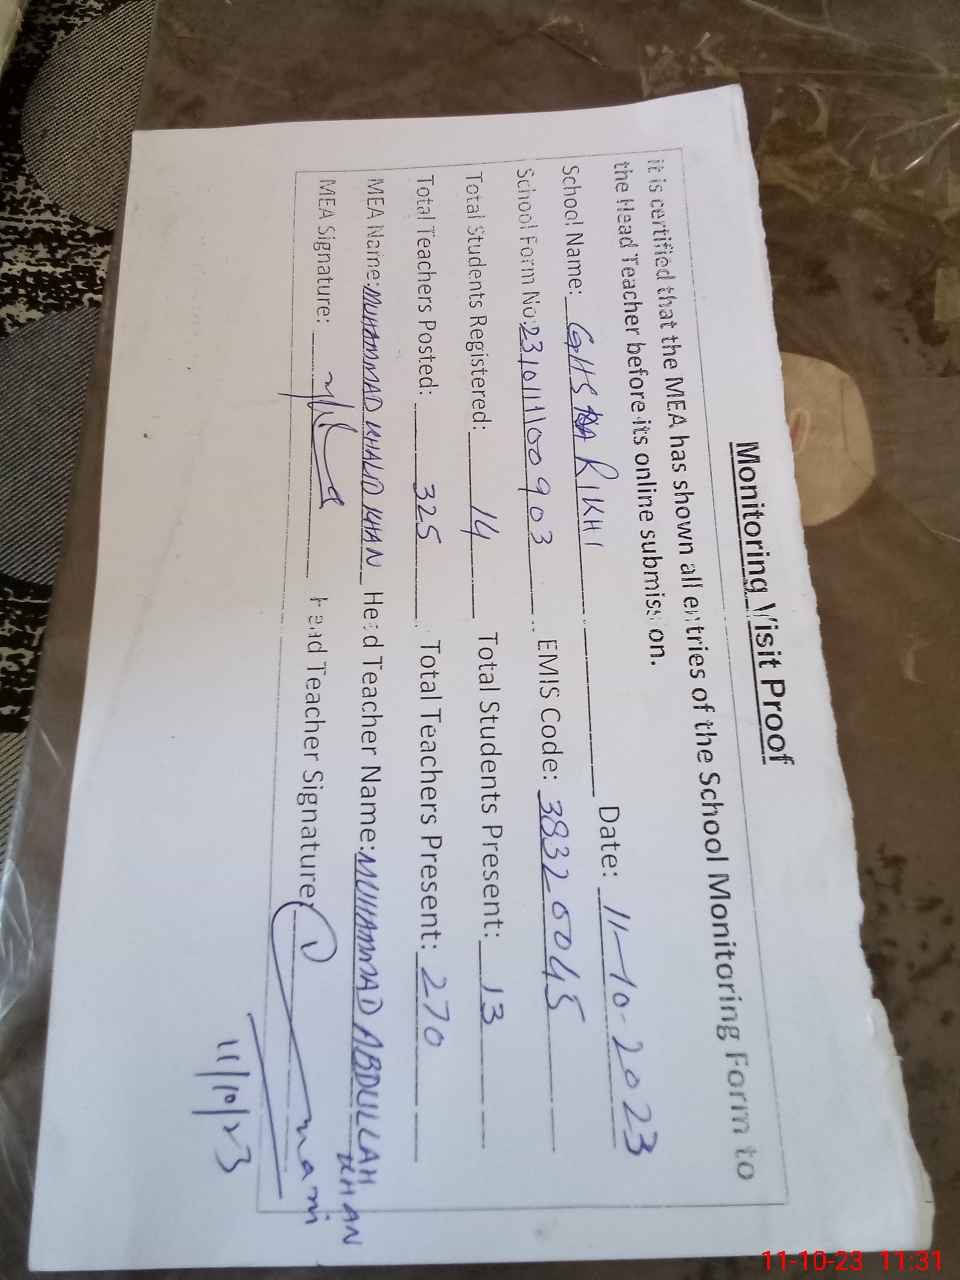 Monitoring Visit Proof
it is certified that the MEA has shown all entries of the School Monitoring Form to
the Head Teacher before its online submission.
School Name: GHS RIKHI Date: 11-10-2023
School Form No: 231011100903 EMIS Code: 38320045
Total Students Registered: 14 Total Students Present: 13
Total Teachers Posted: 325 Total Teachers Present: 270
MEA Name: MUHAMMAD KHALID KHAN Head Teacher Name: MUHAMMAD ABDULLAH
KHAN
MEA Signature: Head Teacher Signature:
11/10/23
11-10-23 11:31